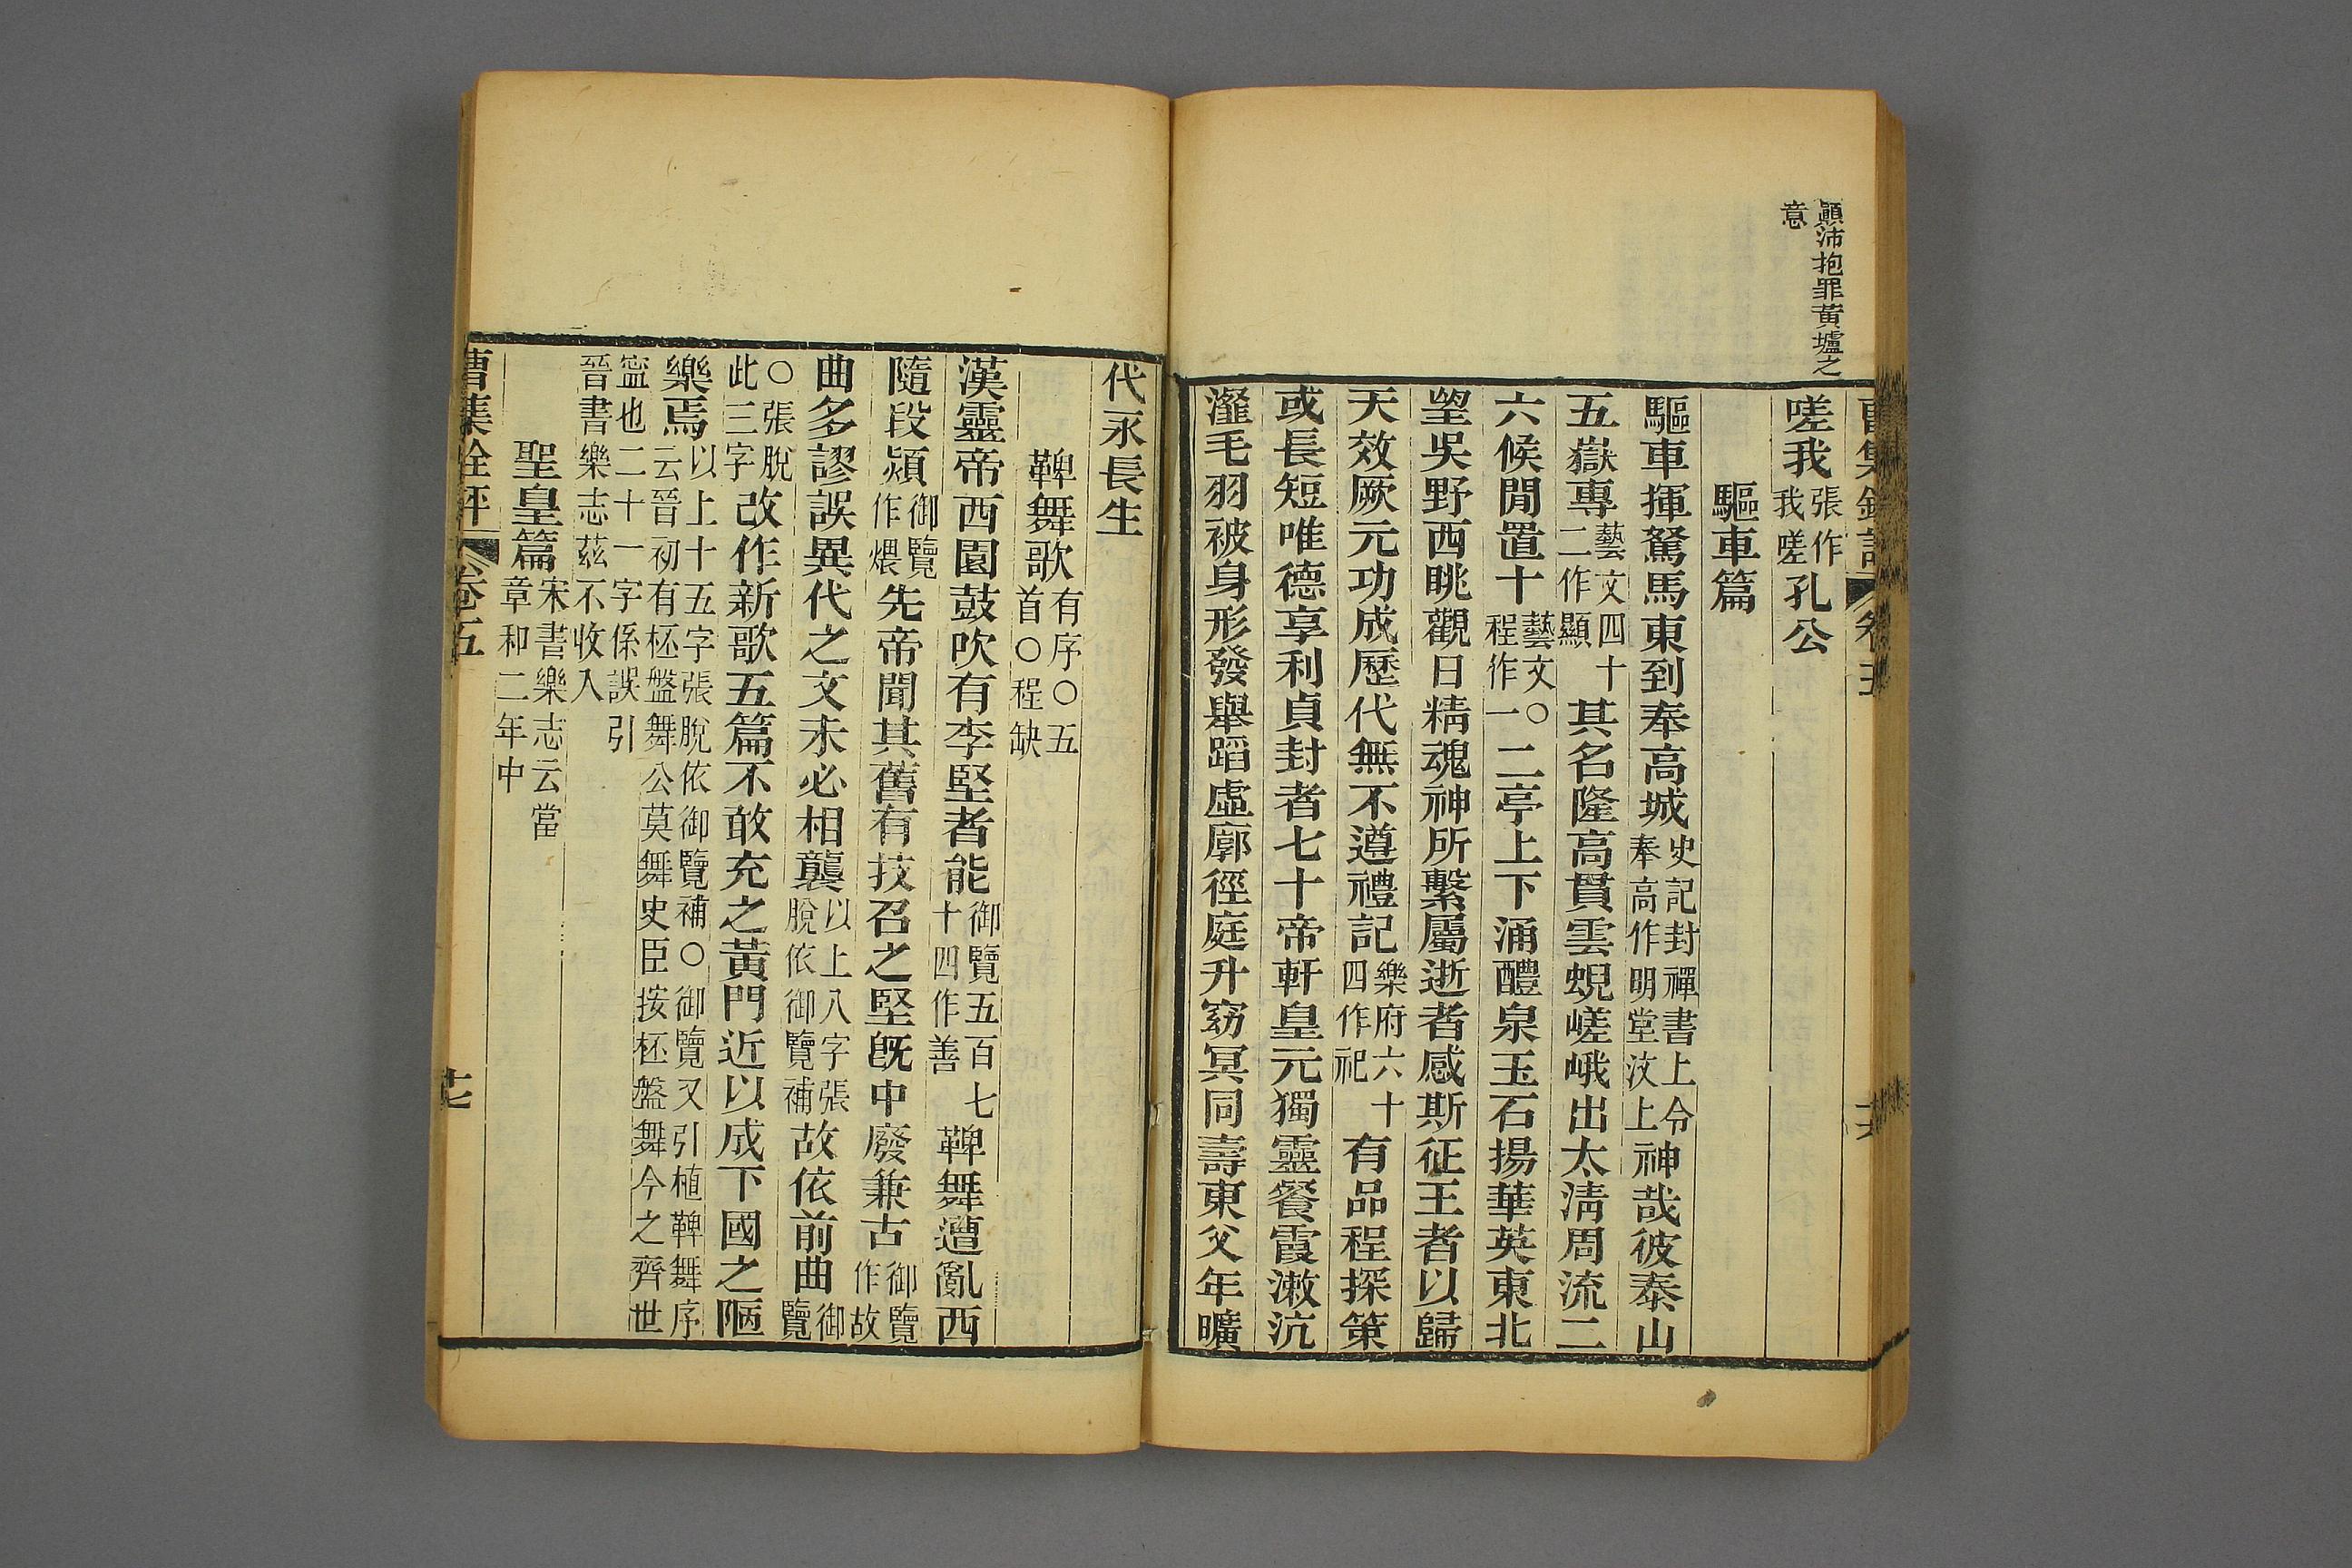 顚沛抱罪黃壚之
意
嗟我張作我嗟孔公
驅車篇
驅車揮駑馬東到奉高城史記封禪書上令奉高作明堂汶上神哉彼泰山
五嶽專藝文四十二作顯其名隆高貫雲蜺嵯峨出太淸周流二
六候閒置十藝文○程作一二亭上下涌醴泉玉石揚華英東北
望吳野西眺觀日精魂神所繫屬逝者感斯征王者以歸
天效厥元功成歷代無不遵禮記樂府六十四作祀有品程探策
或長短唯德享利貞封者七十帝軒皇元獨靈餐霞漱沆
瀣毛羽被身形發舉蹈虛廓徑庭升窈冥同壽東父年曠
代永長生
鞞舞歌有序○五首○程缺
漢靈帝西園鼓吹有李堅者能御覽五百七十四作善鞞舞遭亂西
隨段熲御覽作煨先帝聞其舊有技召之堅旣中廢兼古御覽作故
曲多謬誤異代之文未必相襲以上八字張脫依御覽補故依前曲御覽
○張脫此三字改作新歌五篇不敢充之黃門近以成下國之陋
樂焉以上十五字張脫依御覽補○御覽又引植鞞舞序云晉初有柸盤舞公莫舞史臣按柸盤舞今之齊世
寍也二十一字係誤引晉書樂志茲不收入
聖皇篇宋書樂志云當章和二年中
曹集銓評 卷五 十七